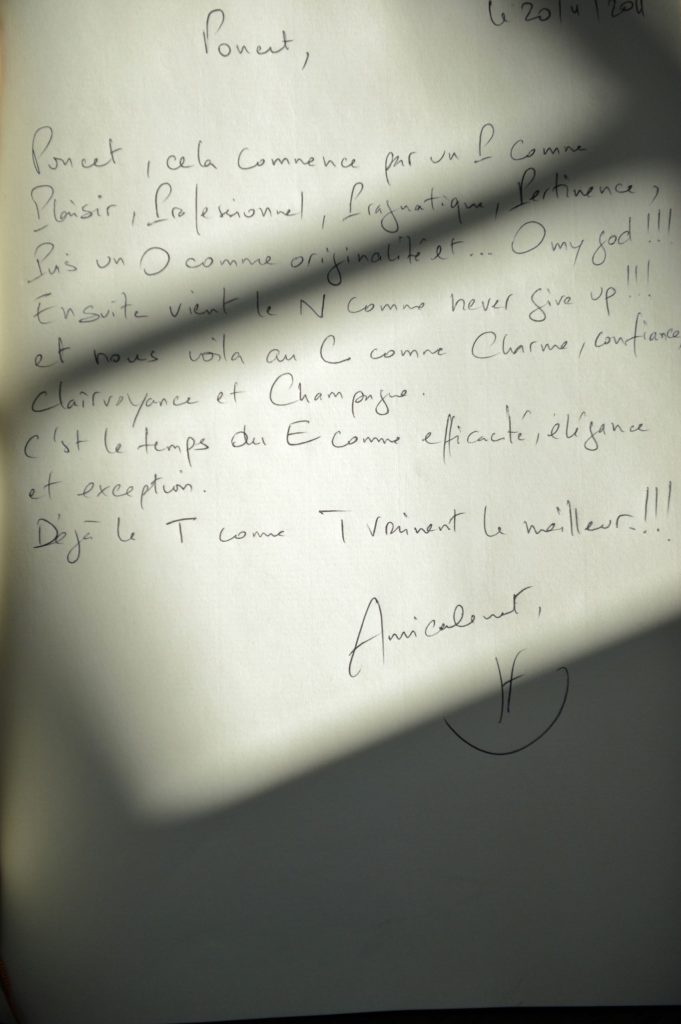 le 20/4/2011
Poncet,
Poncet, cela commence par un P comme
Plaisir, Professionnel, Pragmatique, Pertinence,
Puis un O comme originalité et... O my god!!!
Ensuite vient le N comme never give up!!!
et nous voila au C comme Charme, confiance,
Clairvoyance et Champagne.
C'est le temps du E comme efficacité, élégance
et exception.
Déjà le T comme T vraiment le meilleur!!!
Amicalement,